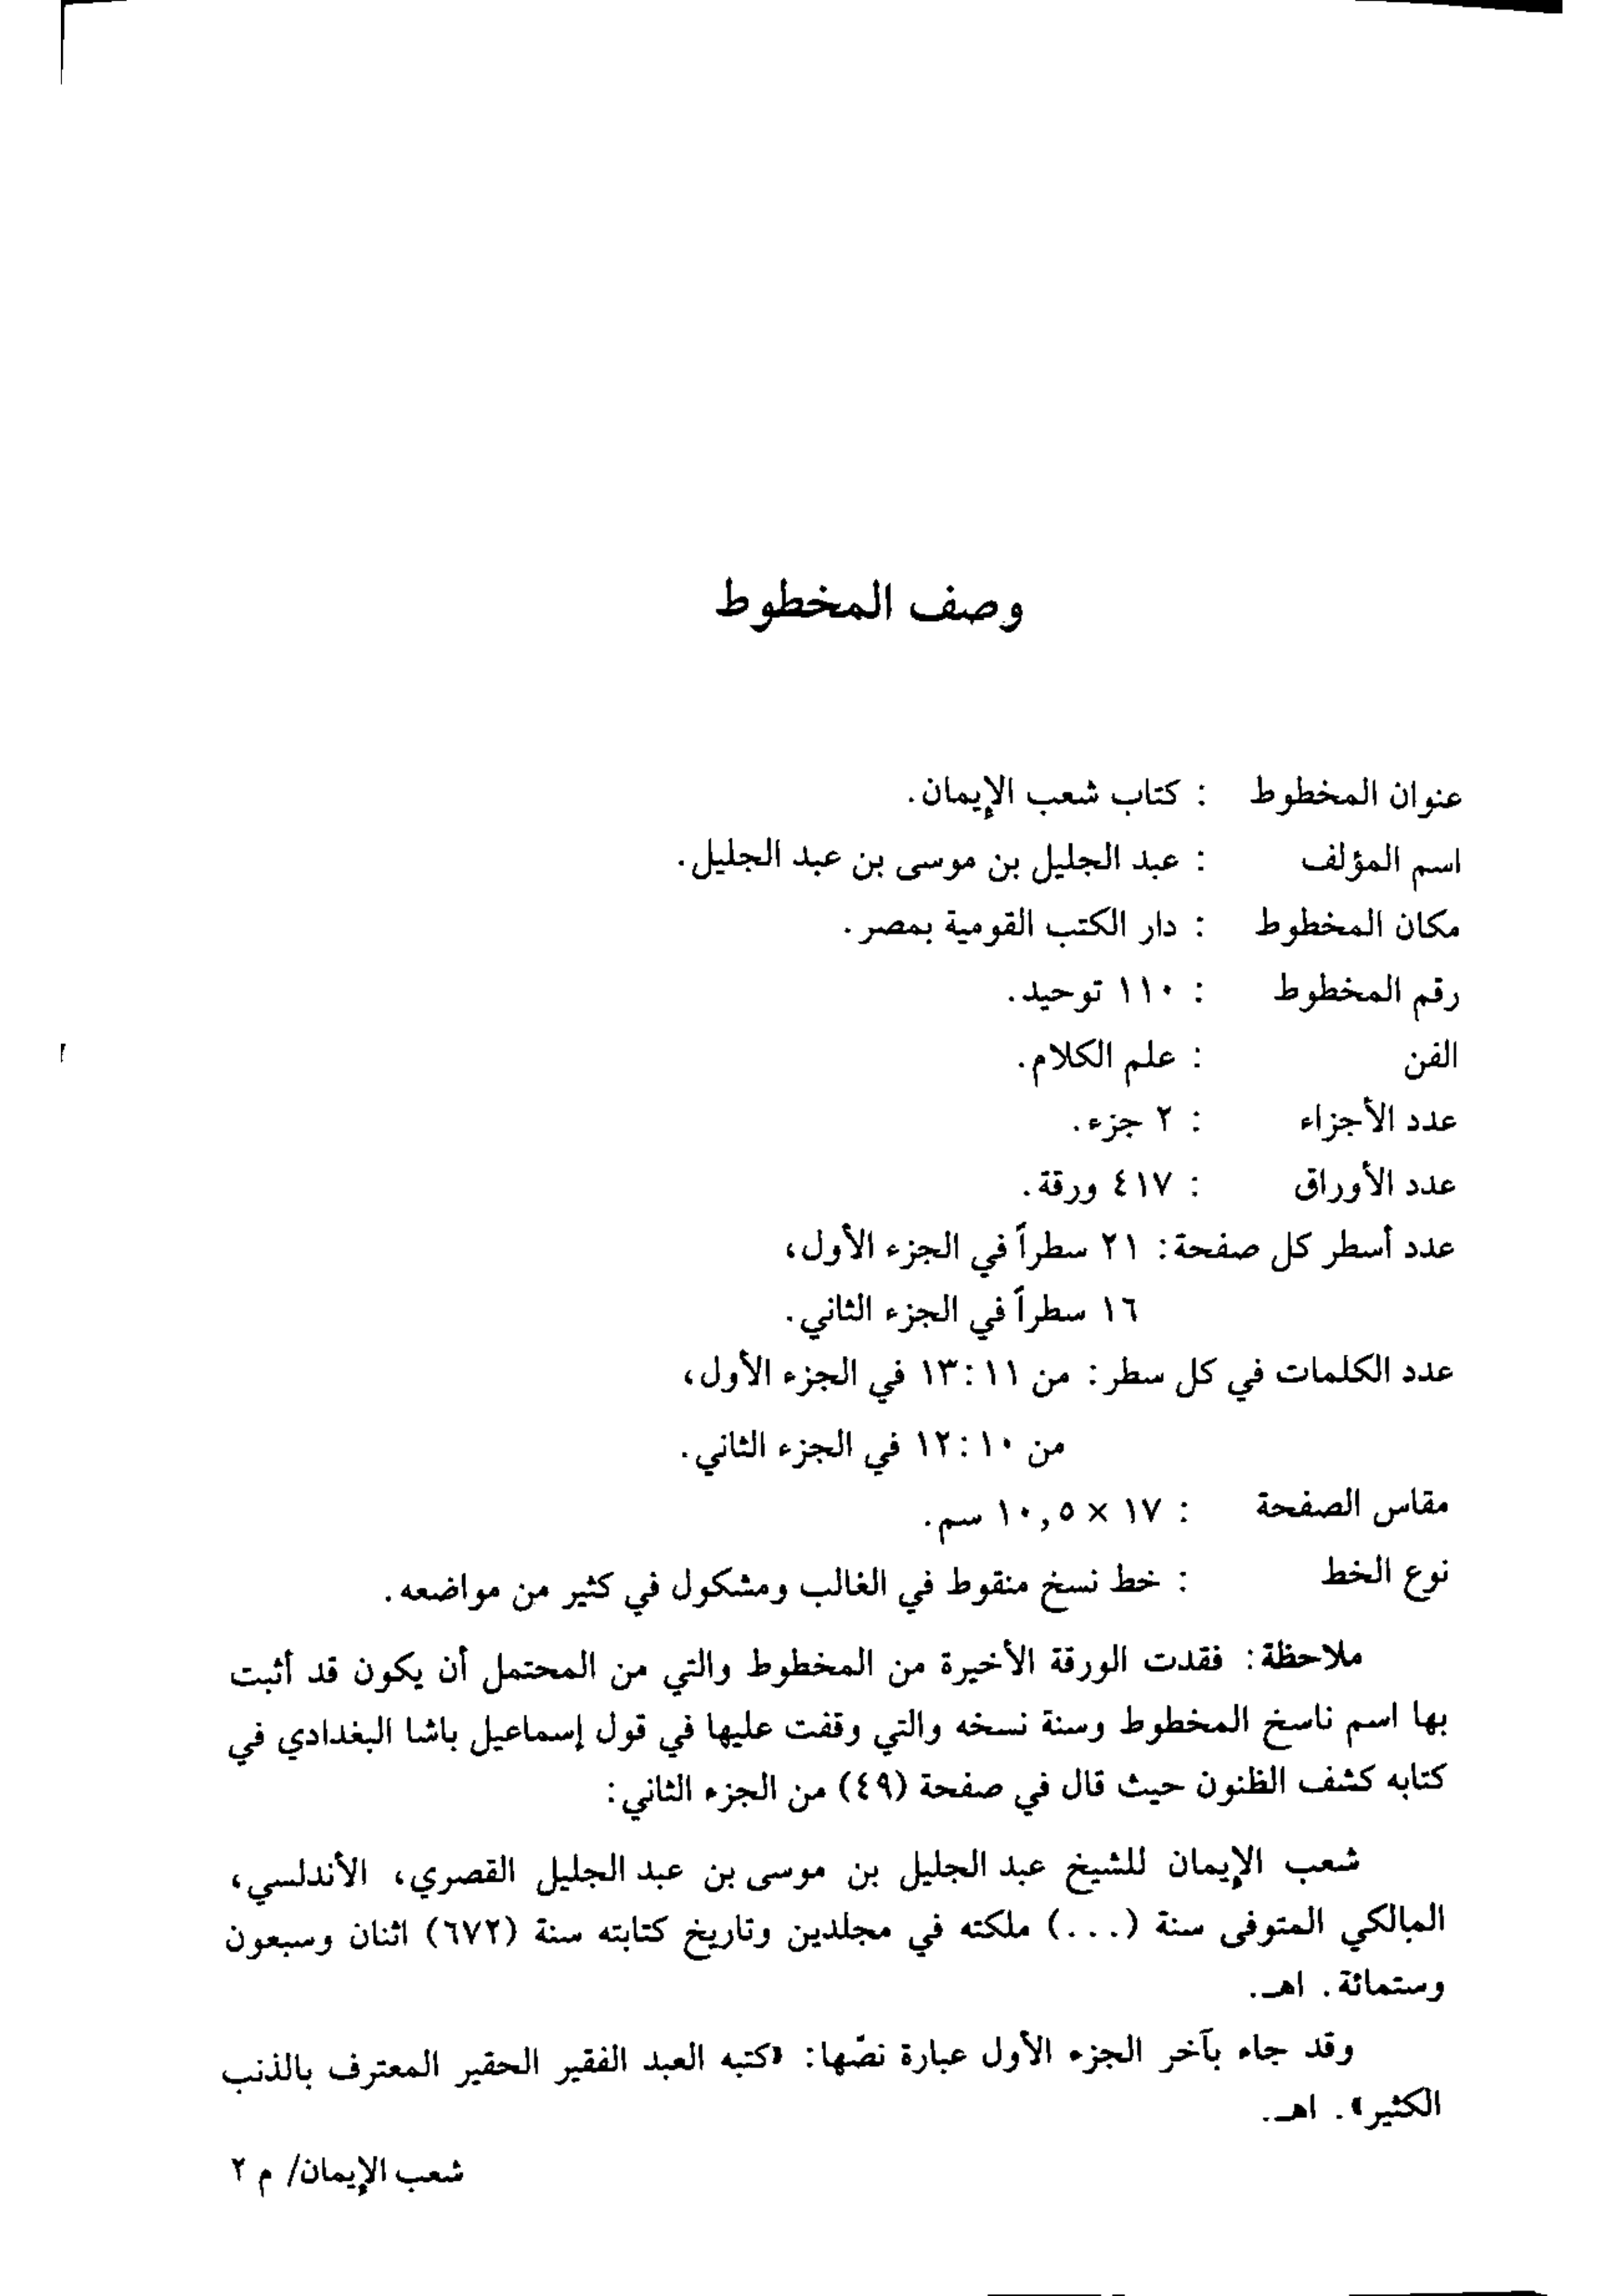 وصف المخطوط
عنوان المخطوط : كتاب شعب الإيمان.
اسم المؤلف : عبد الجليل بن موسى بن عبد الجليل.
مكان المخطوط : دار الكتب القومية بمصر.
رقم المخطوط : ١١٠ توحيد.
الفن : علم الكلام.
عدد الأجزاء : ٢ جزء.
عدد الأوراق : ٤١٧ ورقة.
عدد أسطر كل صفحة: ٢١ سطراً في الجزء الأول،
١٦ سطراً في الجزء الثاني.
عدد الكلمات في كل سطر: من ١١:١٣ في الجزء الأول،
من ١٠:١٢ في الجزء الثاني.
مقاس الصفحة : ١٧ × ١٠,٥ سم.
نوع الخط : خط نسخ منقوط في الغالب ومشكول في كثير من مواضعه.
ملاحظة: فقدت الورقة الأخيرة من المخطوط والتي من المحتمل أن يكون قد أثبت
بها اسم ناسخ المخطوط وسنة نسخه والتي وقفت عليها في قول إسماعيل باشا البغدادي في
كتابه كشف الظنون حيث قال في صفحة (٤٩) من الجزء الثاني:
شعب الإيمان للشيخ عبد الجليل بن موسى بن عبد الجليل القصري، الأندلسي،
المالكي المتوفى سنة (...) ملكته في مجلدين وتاريخ كتابته سنة (٦٧٢) اثنان وسبعون
وستمائة. اهـ.
وقد جاء بآخر الجزء الأول عبارة نصّها: «كتبه العبد الفقير الحقير المعترف بالذنب
الكثير». اهـ.
شعب الإيمان/ م ٢